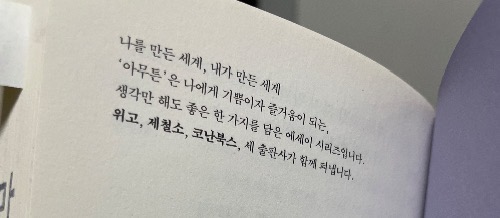 나를 만든 세계, 내가 만든 세계
‘아무튼’은 나에게 기쁨이자 즐거움이 되는,
생각만 해도 좋은 한 가지를 담은 에세이 시리즈입니다.
위고, 제철소, 코난북스, 세 출판사가 함께 펴냅니다.